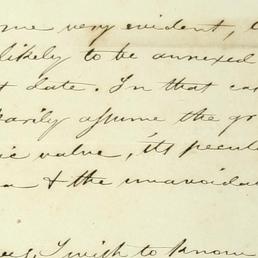 me very evident,
likely to be annexed
t date. In that ca
arily assume the gr
ic value, its pecul
& the unavoida
I wish to know